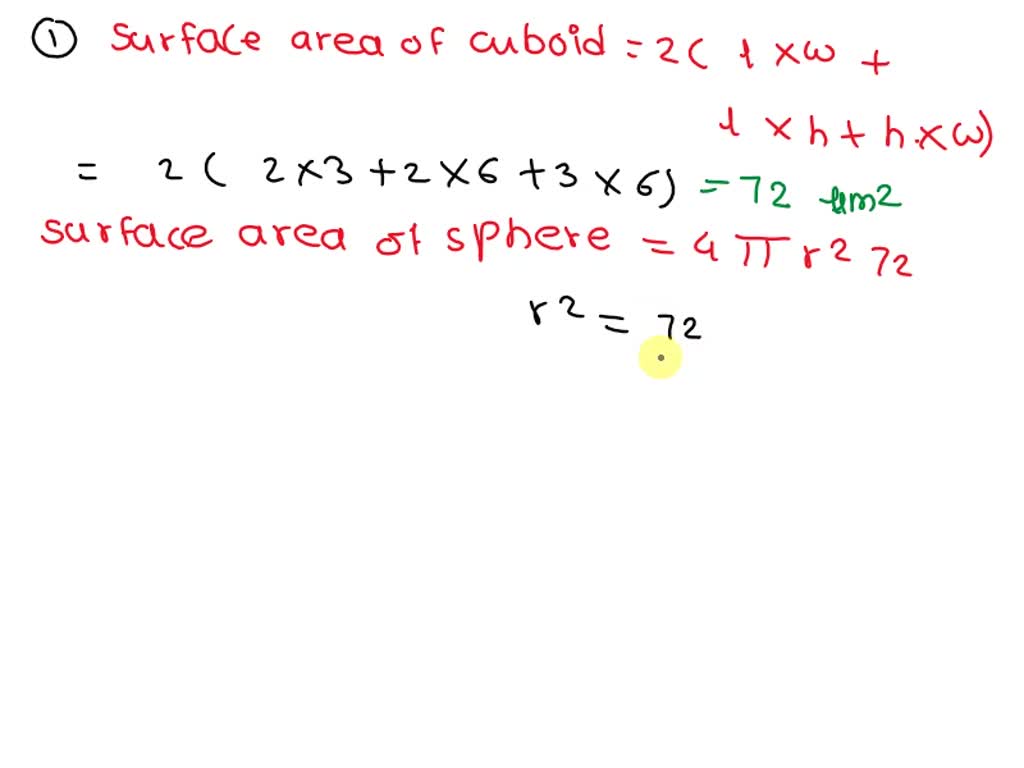 ① Surface area of cuboid = 2( l × w +
l × h + h × w)
= 2 ( 2 × 3 + 2 × 6 + 3 × 6) = 72 μm2
surface area of sphere = 4 π r2 72
r2 = 72